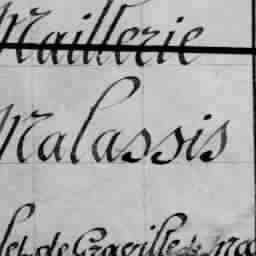 Maillerie
Malassis
de Graville